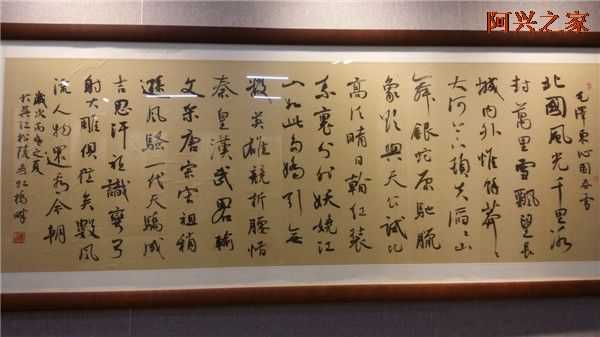 阿兴之家
毛澤東沁園春雪
北國風光千里冰
封萬里雪飄望長
城內外惟餘莽〻
大河上下頓失滔〻山
舞銀蛇原馳臘
象欲與天公試比
高須晴日看紅裝
素裹分外妖嬈江
山如此多嬌引無
數英雄競折腰惜
秦皇漢武畧輸
文采唐宗宋祖稍
遜風騷一代天驕成
吉思汗祗識彎弓
射大雕俱往矣數風
流人物還看今朝
歲次丙申之夏
於吳江松陵